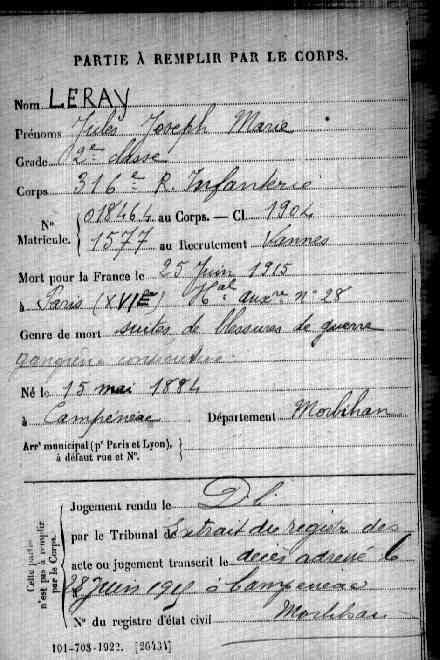 PARTIE À REMPLIR PAR LE CORPS.
Nom LERAY
Prénoms Jules Joseph Marie
Grade 2e classe
Corps 316e R. Infanterie
N° Matricule. 018464 au Corps. — Cl. 1904
1577 au Recrutement Vannes
Mort pour la France le 25 Juin 1915
à Paris (XVIE) Hal auxre n° 28
Genre de mort suites de blessures de guerre
gangrène consécutive
Né le 15 mai 1884
à Campénéac Département Morbihan
Arrt municipal (pr Paris et Lyon),
à défaut rue et N°.
Cette partie n'est pas à remplir par le Corps.
Jugement rendu le D. l.
par le Tribunal de Extrait du registre des
acte ou jugement transcrit le décès adressé le
28 Juin 1915 à Campénéac
N° du registre d'état civil Morbihan
101-708-1922. [26434]